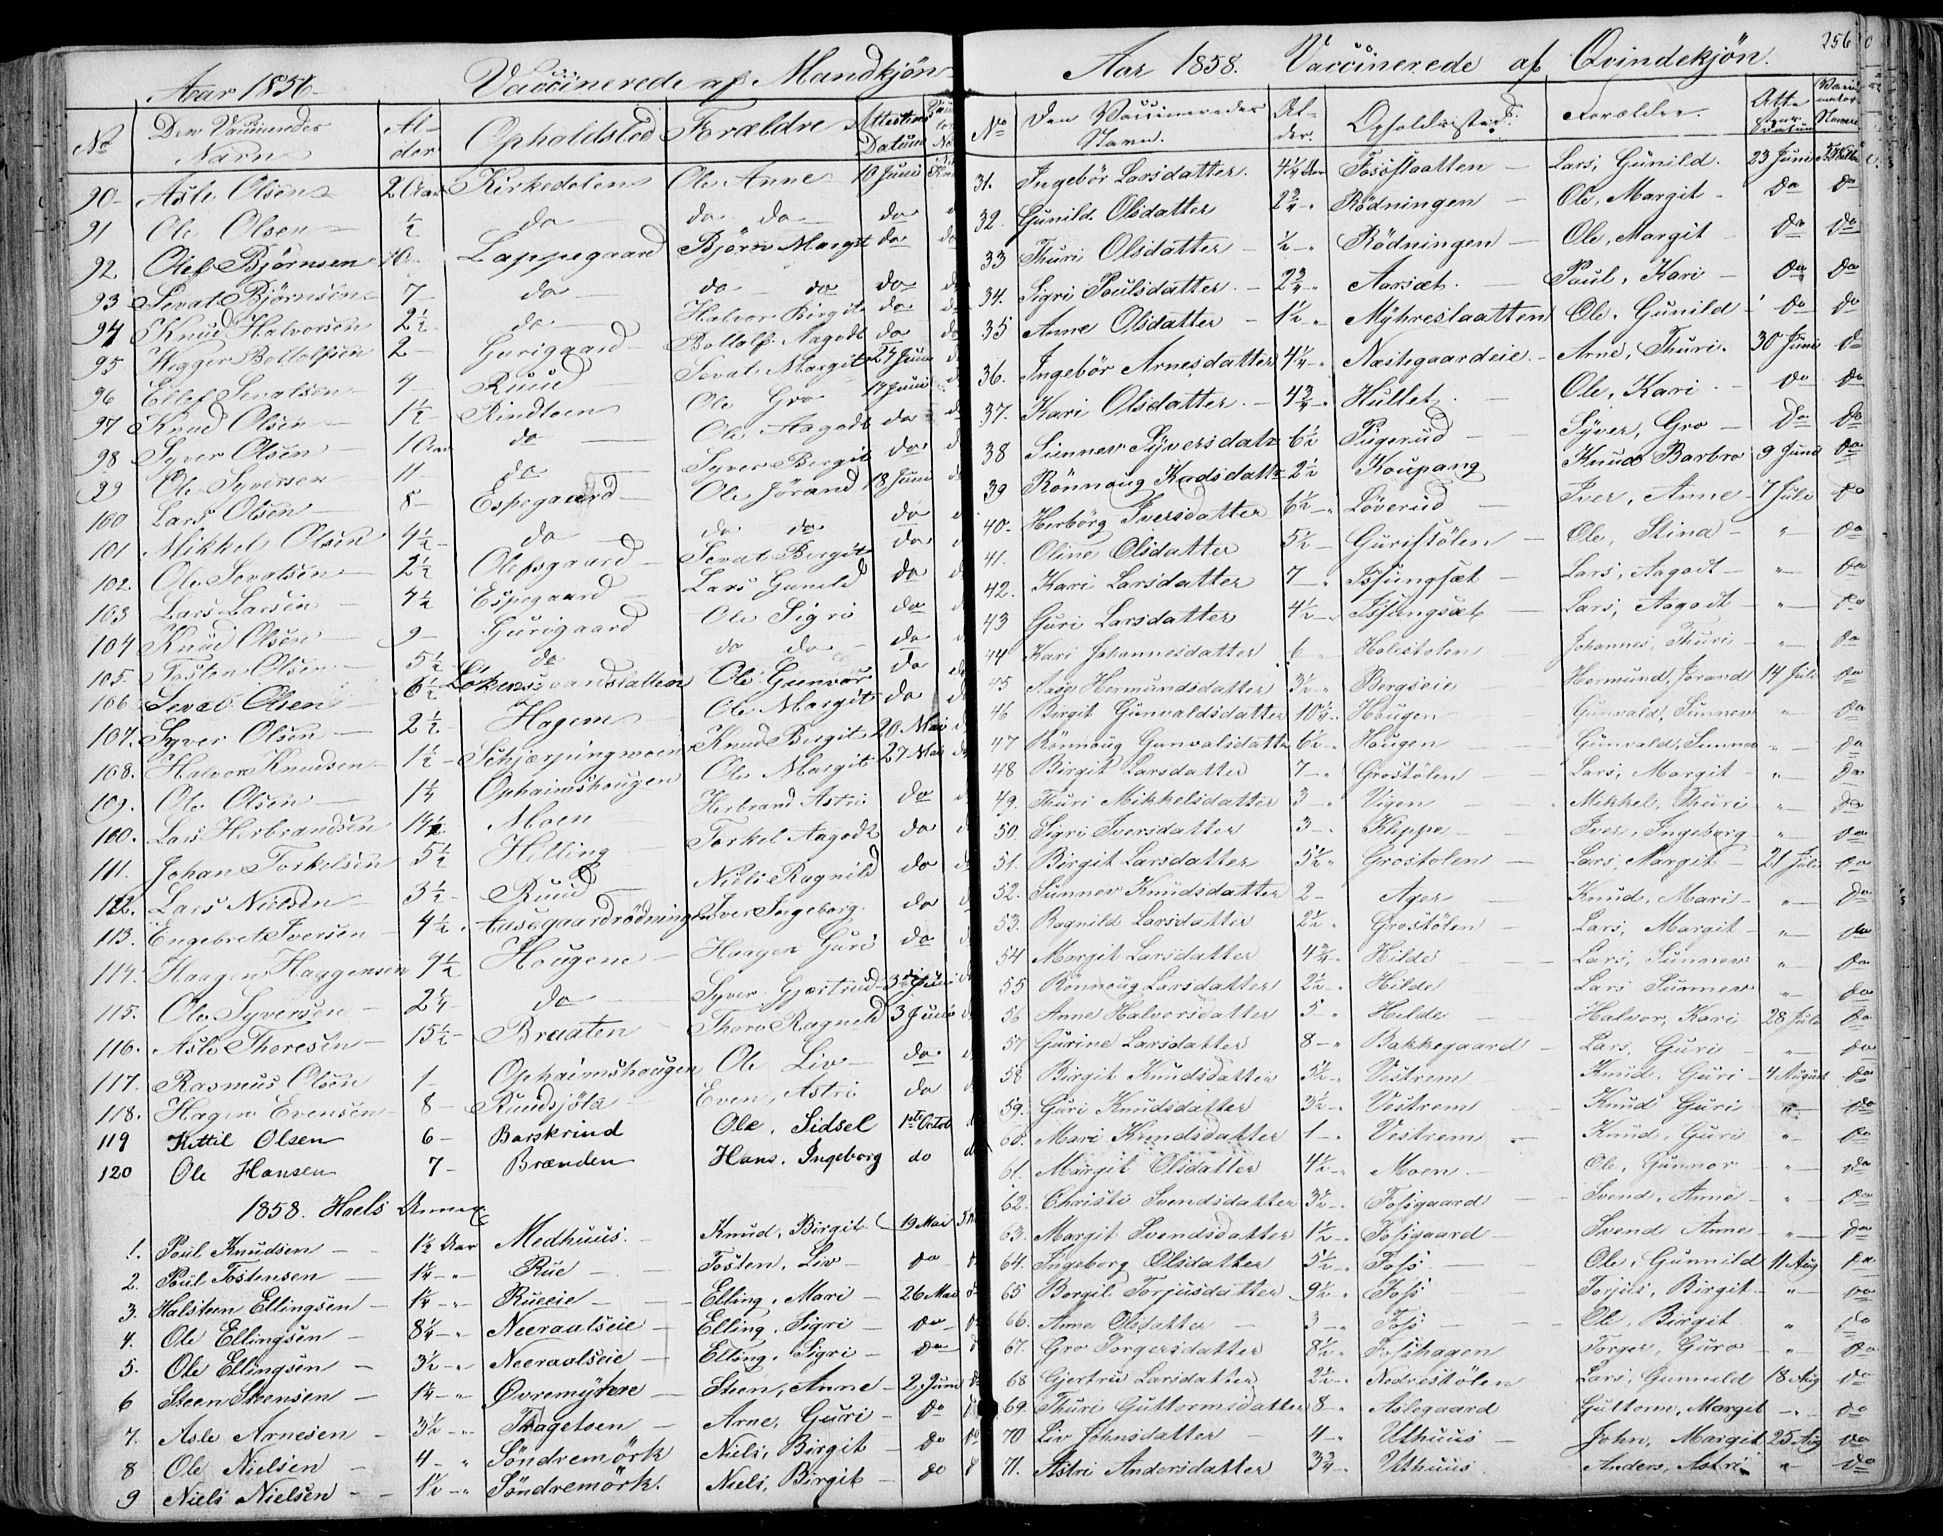 Aar 1856 Vaccinerede af Mandkjön
No Den Vaccineredes Navn Alder Opholdsted Forældre Attestens Datum
90 Asle Olsen 2 Aar Kirkedelen Ole Anne 19 Juni
91 Ole Olsen ½ do do do do
92 Olef Björnsen 10 Lappegaard Björn Margit do
93 Sevat Björnsen 7 do do do do
94 Knud Halvorsen 2½ do Halvor Birgit do
95 Bottolfsen 2 Gurigaard Bottolf Aagodt do
96 Ellef Sevatsen 7 Ruud Sevat Margit 27 Juni
97 Knud Olsen 1½ Rindteen Ole Gro 17 Juni
98 Syver Olsen 10 Aar do Ole Aagodt do
99 Ole Syversen 11 do Syver Birgit do
100 Lars Olsen 8 Espegaard Ole Jörand 18 Juni
101 Mikkel Olsen 4½ do do do do
102 Ole Sevatsen 2½ Olefsgaard Sevat Birgit do
103 Lars Larsen 4½ Espegaard Lars Gunild do
104 Knud Olsen 9 Gurigaard Ole Sigri do
105 Tosten Olsen 5½ do do do do
106 Sevat Olsen 6½ Ole Gunvor do
107 Syver Olsen 2½ Hagen Ole Margit do
108 Halvor Knudsen 1½ Schjærpingmoen Knud Birgit 20 Mai
109 Ole Olsen 1¼ Ophaimshougen Ole Margit 27 Mai
100 Lars Herbrandsen Moen Herbrand Astri do
111 Johan Torkelsen 5½ Hilling Torkel Aagodt do
112 Lars Nielsen 3½ Ruud Niels Ragnild do
113 Engebret Iversen 4½ Aasegaardrödningen Iver Ingeborg do
114 Haagen Haagensen 9½ Hougene Haagen Guri do
115 Ole Syversen 2¼ do Syver Gjertrud 3 Juni
116 Asle Thoresen 15½ Braaten Thore Ragnild 3 Juni
117 Rasmus Olsen 1 Ophaimshougen Ole Liv do
118 Hagen Evensen 8 Ruudsjöta Even, Astri do
119 Kittil Olsen 6 Barskrind Ole, Sidsel 1ste Octob
120 Ole Hansen 7 Brænden Hans, Ingeborg do
1858. Hoels Annex
1. Poul Knudsen 1½ Aar Medhuus Knud, Birgit 19 Mai
2. Poul Tostensen 1¼ " Rue Tosten, Liv do
3. Halsteen Ellingsen 1¼ " Rueeie Elling, Mari 26 Mai
4. Ole Ellingsen 8¼ " Neeraalseie Elling, Sigri do
5. Ole Ellingsen 3½ " Neeraalseie Elling, Sigri do
6 Steen Steensen 1¼ " Øvremyhre Steen, Anne 2 Juni
7. Asle Arnesen 3½ " Trageteen Arne, Guri do
8 Ole Nielsen 4 " Söndremörk Niels, Birgit do
9 Niels Nielsen 1½ " Söndremörk Niels, Birgit do
256
Aar 1858. Vaccinerede af Qvindekjön.
No Den Vaccineredes Navn. Alder. Opholdssted. Forældre. Attestens Datum Vaccinators Navn
31. Ingebör Larsdatter 4¼ Aar Fossslaatten Lars, Gunild. 23 Juni
32. Gunild Olsdatter 2¾ " Rödningen Ole, Margit do do
33 Thuri Olsdatter ½ " Rödningen Ole, Margit do do
34. Sigri Poulsdatter 2¾ " Aarsæt Poul, Kari do do
35 Anne Olsdatter 1½ " Mÿhreslaatten Ole, Gunild do do
36. Ingebör Arnesdatter 4¼ " Nastegaardeie Arne, Thuri. 30 Juni do
37. Kari Olsdatter 4¾ " Hullet Ole, Kari do do
38 Sunnev Syversdatr 6½ Pugerud Syver, Gro do do
39 Rönnoug Kndsdatte 2½ Koupang Knud Barbro 9 Juni do
40. Herbörg Iversdatter 6½ Löverud Iver, Anne 7 Juli do
41. Oline Olsdatter 5½ Guristölen Ole, Stina " do
42. Kari Larsdatter 7 " Issungsæt Lars, Aagodt " do
43 Guri Larsdatter 4½ " Issungsæt Lars, Aagodt " do
44 Kari Johannesdatter 6 Holestolen Johannes, Thuri do
45 Aase Hermundsdatter 3½ Bergseie Hermund, Jörand 14 Juli do
46 Birgit Gunvaldsdatter 10¼ Hougen Gunvald, Sunnev " do
47 Rönnoug Gunvalsdatter 6½ Hougen Gunvald, Sunnev " do
48 Birgit Larsdatter 7 Grostölen Lars, Margit " do
49. Thuri Mikkelsdatter 3 Vigen Mikkel, Thuri " do
50. Sigri Iversdatter 3 Kleppe Iver, Ingeborg " do
51. Birgit Larsdatter 5½ Grostolen Lars, Margit 21 Juli do
52. Sunnev Knudsdatter 2 Ager Knud, Mari " do
53. Ragnild Larsdatter 2½ Grostölen Lars, Margit " do
54 Margit Larsdatter 4¾ Hilde Lars, Sunnev " do
55 Rönnoug Larsdatter 2½ Hilde Lars Sunnev " do
56 Anne Halvorsdatter 5 " Hilde Halvor, Kari 28 Juli do
57 Gurine Larsdatter 8 " Bakkegaard Lars, Guri " do
58 Birgit Knudsdatter 5½ Vestrem Knud, Guri 4 August do
59. Guri Knudsdatter 3½ Vestrem Knud Guri " do
60. Mari Knudsdatter 1 Vestrem Knud, Guri " do
61. Margit Olsdatter 4½ Moen Ole, Gunnor " do
62. Christi Svendsdatter 3½ Fossgaard Svend, Anne " do
63. Margit Svendsdatter 1½ Fossgaard Svend Anne " do
64. Ingeborg Olsdatter 5½ Foss Ole, Gunnild 11 Aug do
65 Borgil Torjusdatter 9½ Foss Torjus, Birgit " do
66. Anne Olsdatter 3 Foss Ole, Birgit " do
67. Gro Torgersdatter 8½ Fosshagen Torger, Guro " do
68 Gjertru Larsdatter 2½ Nedrestölen Lars, Gunnild 18 Aug do
69. Thuri Guttormsdatter 8 Aslegaard Guttorm, Margit " do
70 Liv Johnsdatter 4 Uthuus John, Margit 25 Aug do
71. Astri Andersdatter 3¾ Uthuus Anders, Astri " do